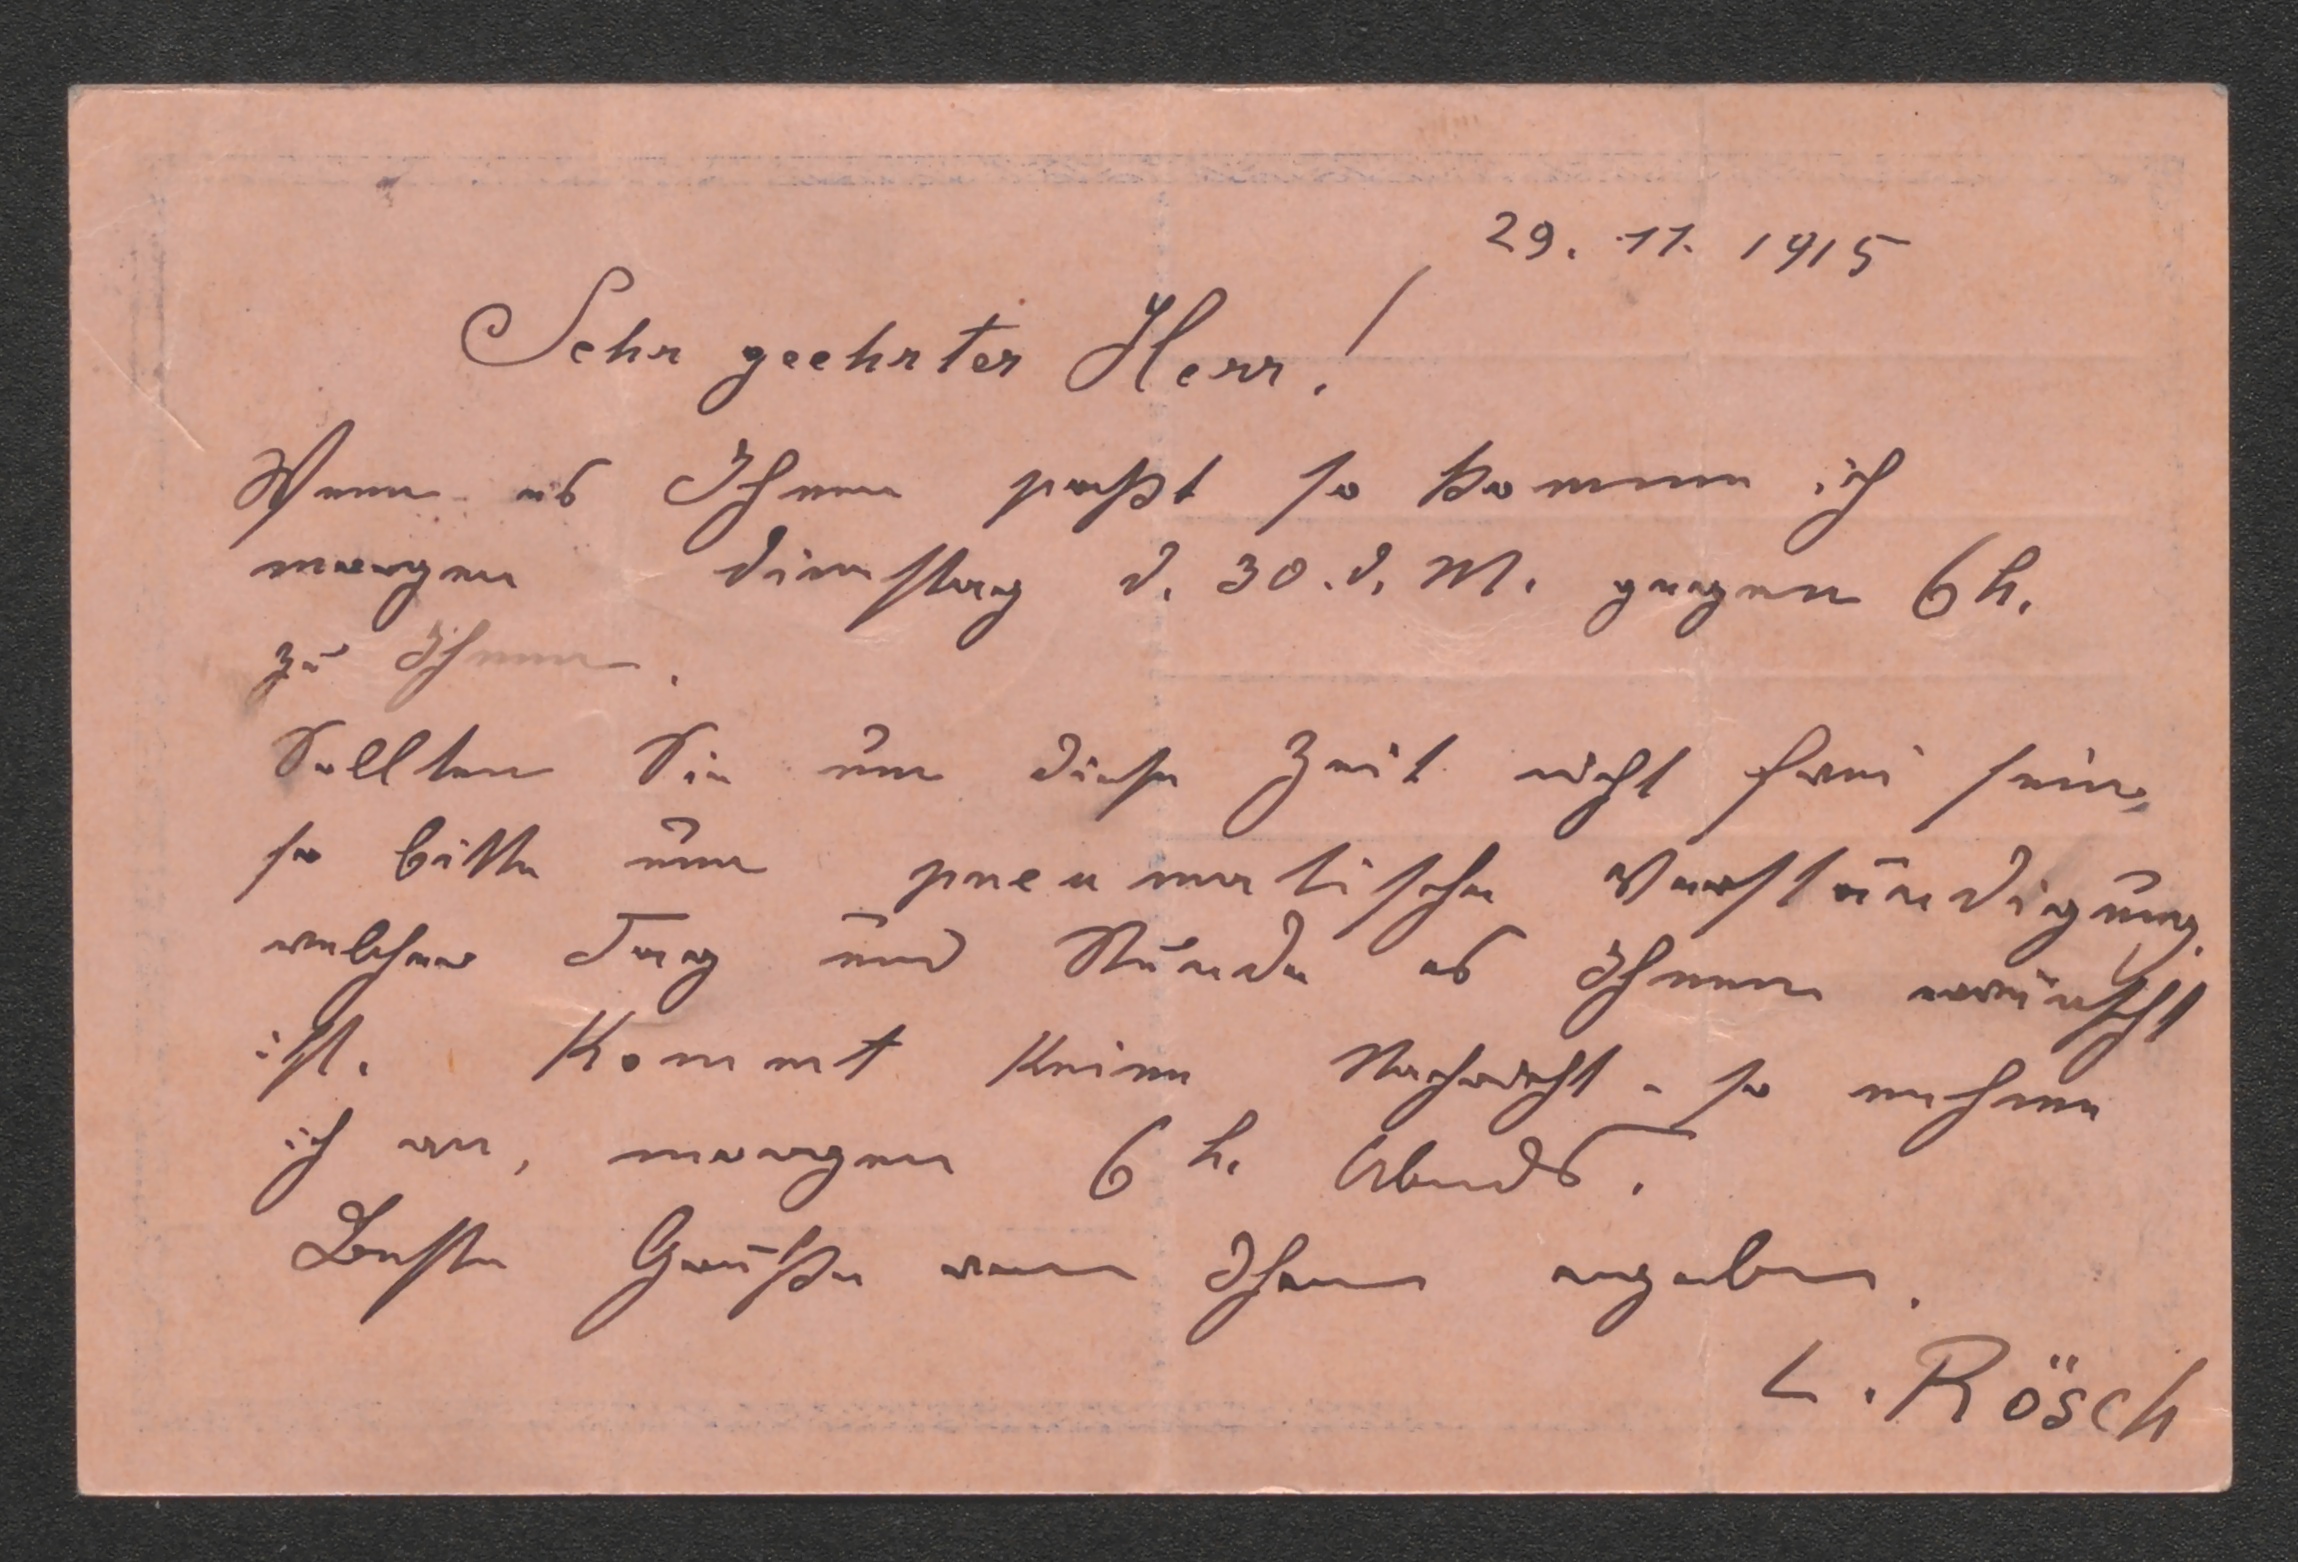 29. 11. 1915
Sehr geehrter Herr!
Wenn es Ihnen paßt so komme ich
morgen Dienstag d. 30. d. M. gegen 6 h.
zu Ihnen.
Sollten Sie um diese Zeit nicht frei sein,
so bitte um pneumatische Verständigung,
welcher Tag und Stunde es Ihnen erwünscht
ist. Kommt keine Nachricht - so nehme
ich an, morgen 6 h. Abends.
Beste Grüße von Ihrem ergeben.
L. Rösch